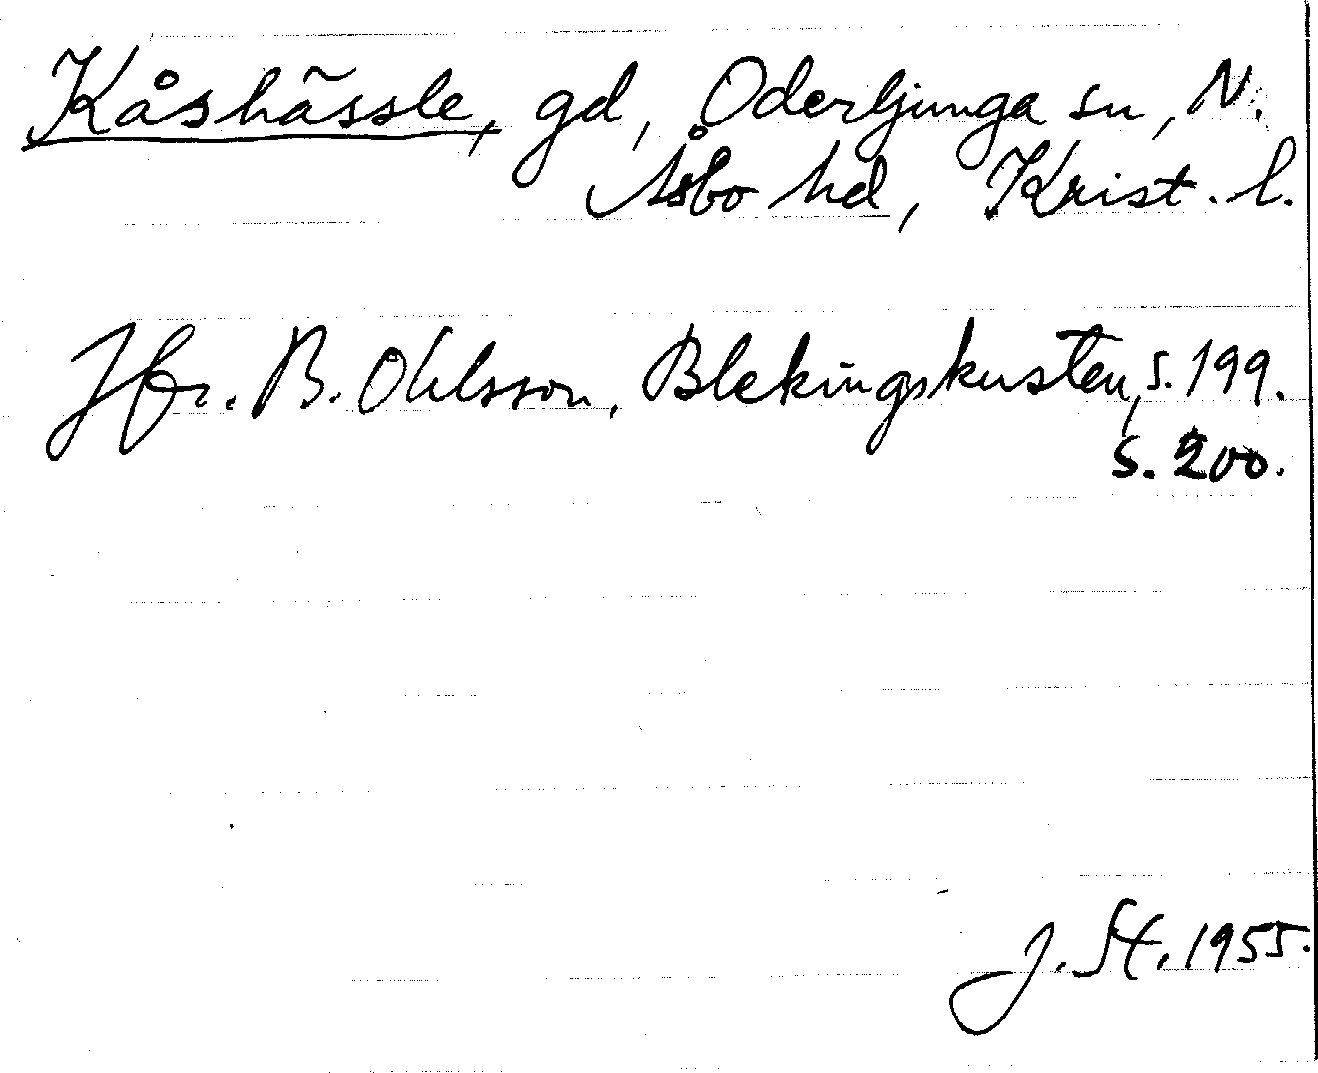 Kåshässle, gd, Oderljunga sn, N.
Åsbo hd, Krist. l.
Jfr. B. Ohlsson, Blekingskusten, s. 199.
s. 200.
J. St. 1955.